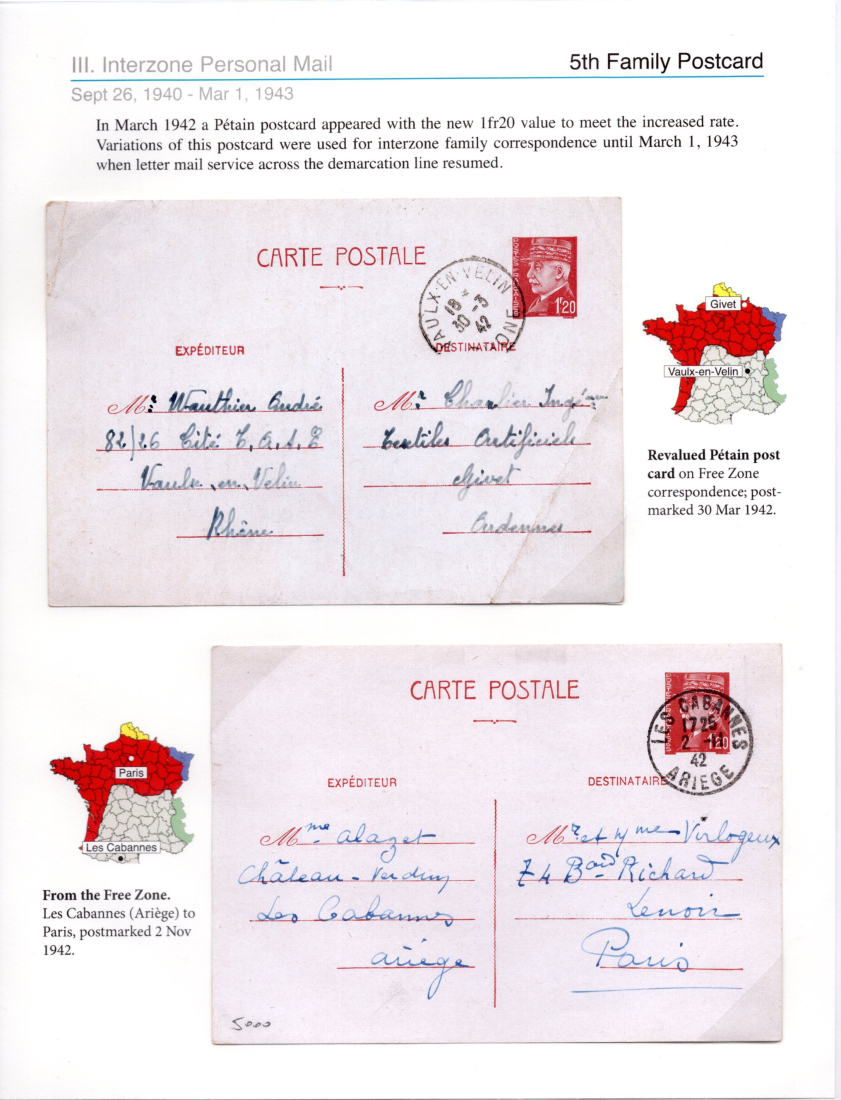 III. Interzone Personal Mail
5th Family Postcard
Sept 26, 1940 - Mar 1, 1943
In March 1942 a Pétain postcard appeared with the new 1fr20 value to meet the increased rate.
Variations of this postcard were used for interzone family correspondence until March 1, 1943
when letter mail service across the demarcation line resumed.
CARTE POSTALE
1f20
VAULX-EN-VELIN
18
30 -3
42
EXPÉDITEUR
DESTINATAIRE
Mr Wauthier André
82/26 Cité T.A.S.E
Vaulx en Velin
Rhône
Mr Charlier
Textiles Artificiels
Givet
Ardennes
Givet
Vaulx-en-Velin
Revalued Pétain post
card on Free Zone
correspondence; post-
marked 30 Mar 1942.
CARTE POSTALE
1f20
LES CABANNES
17 25
2 -11
42
ARIEGE
EXPÉDITEUR
DESTINATAIRE
Mme Alazet
Château-Verdun
Les Cabannes
Ariège
Mr et Mme Virlogeux
74 Bard Richard
Lenoir
Paris
5000
Paris
Les Cabannes
From the Free Zone.
Les Cabannes (Ariège) to
Paris, postmarked 2 Nov
1942.